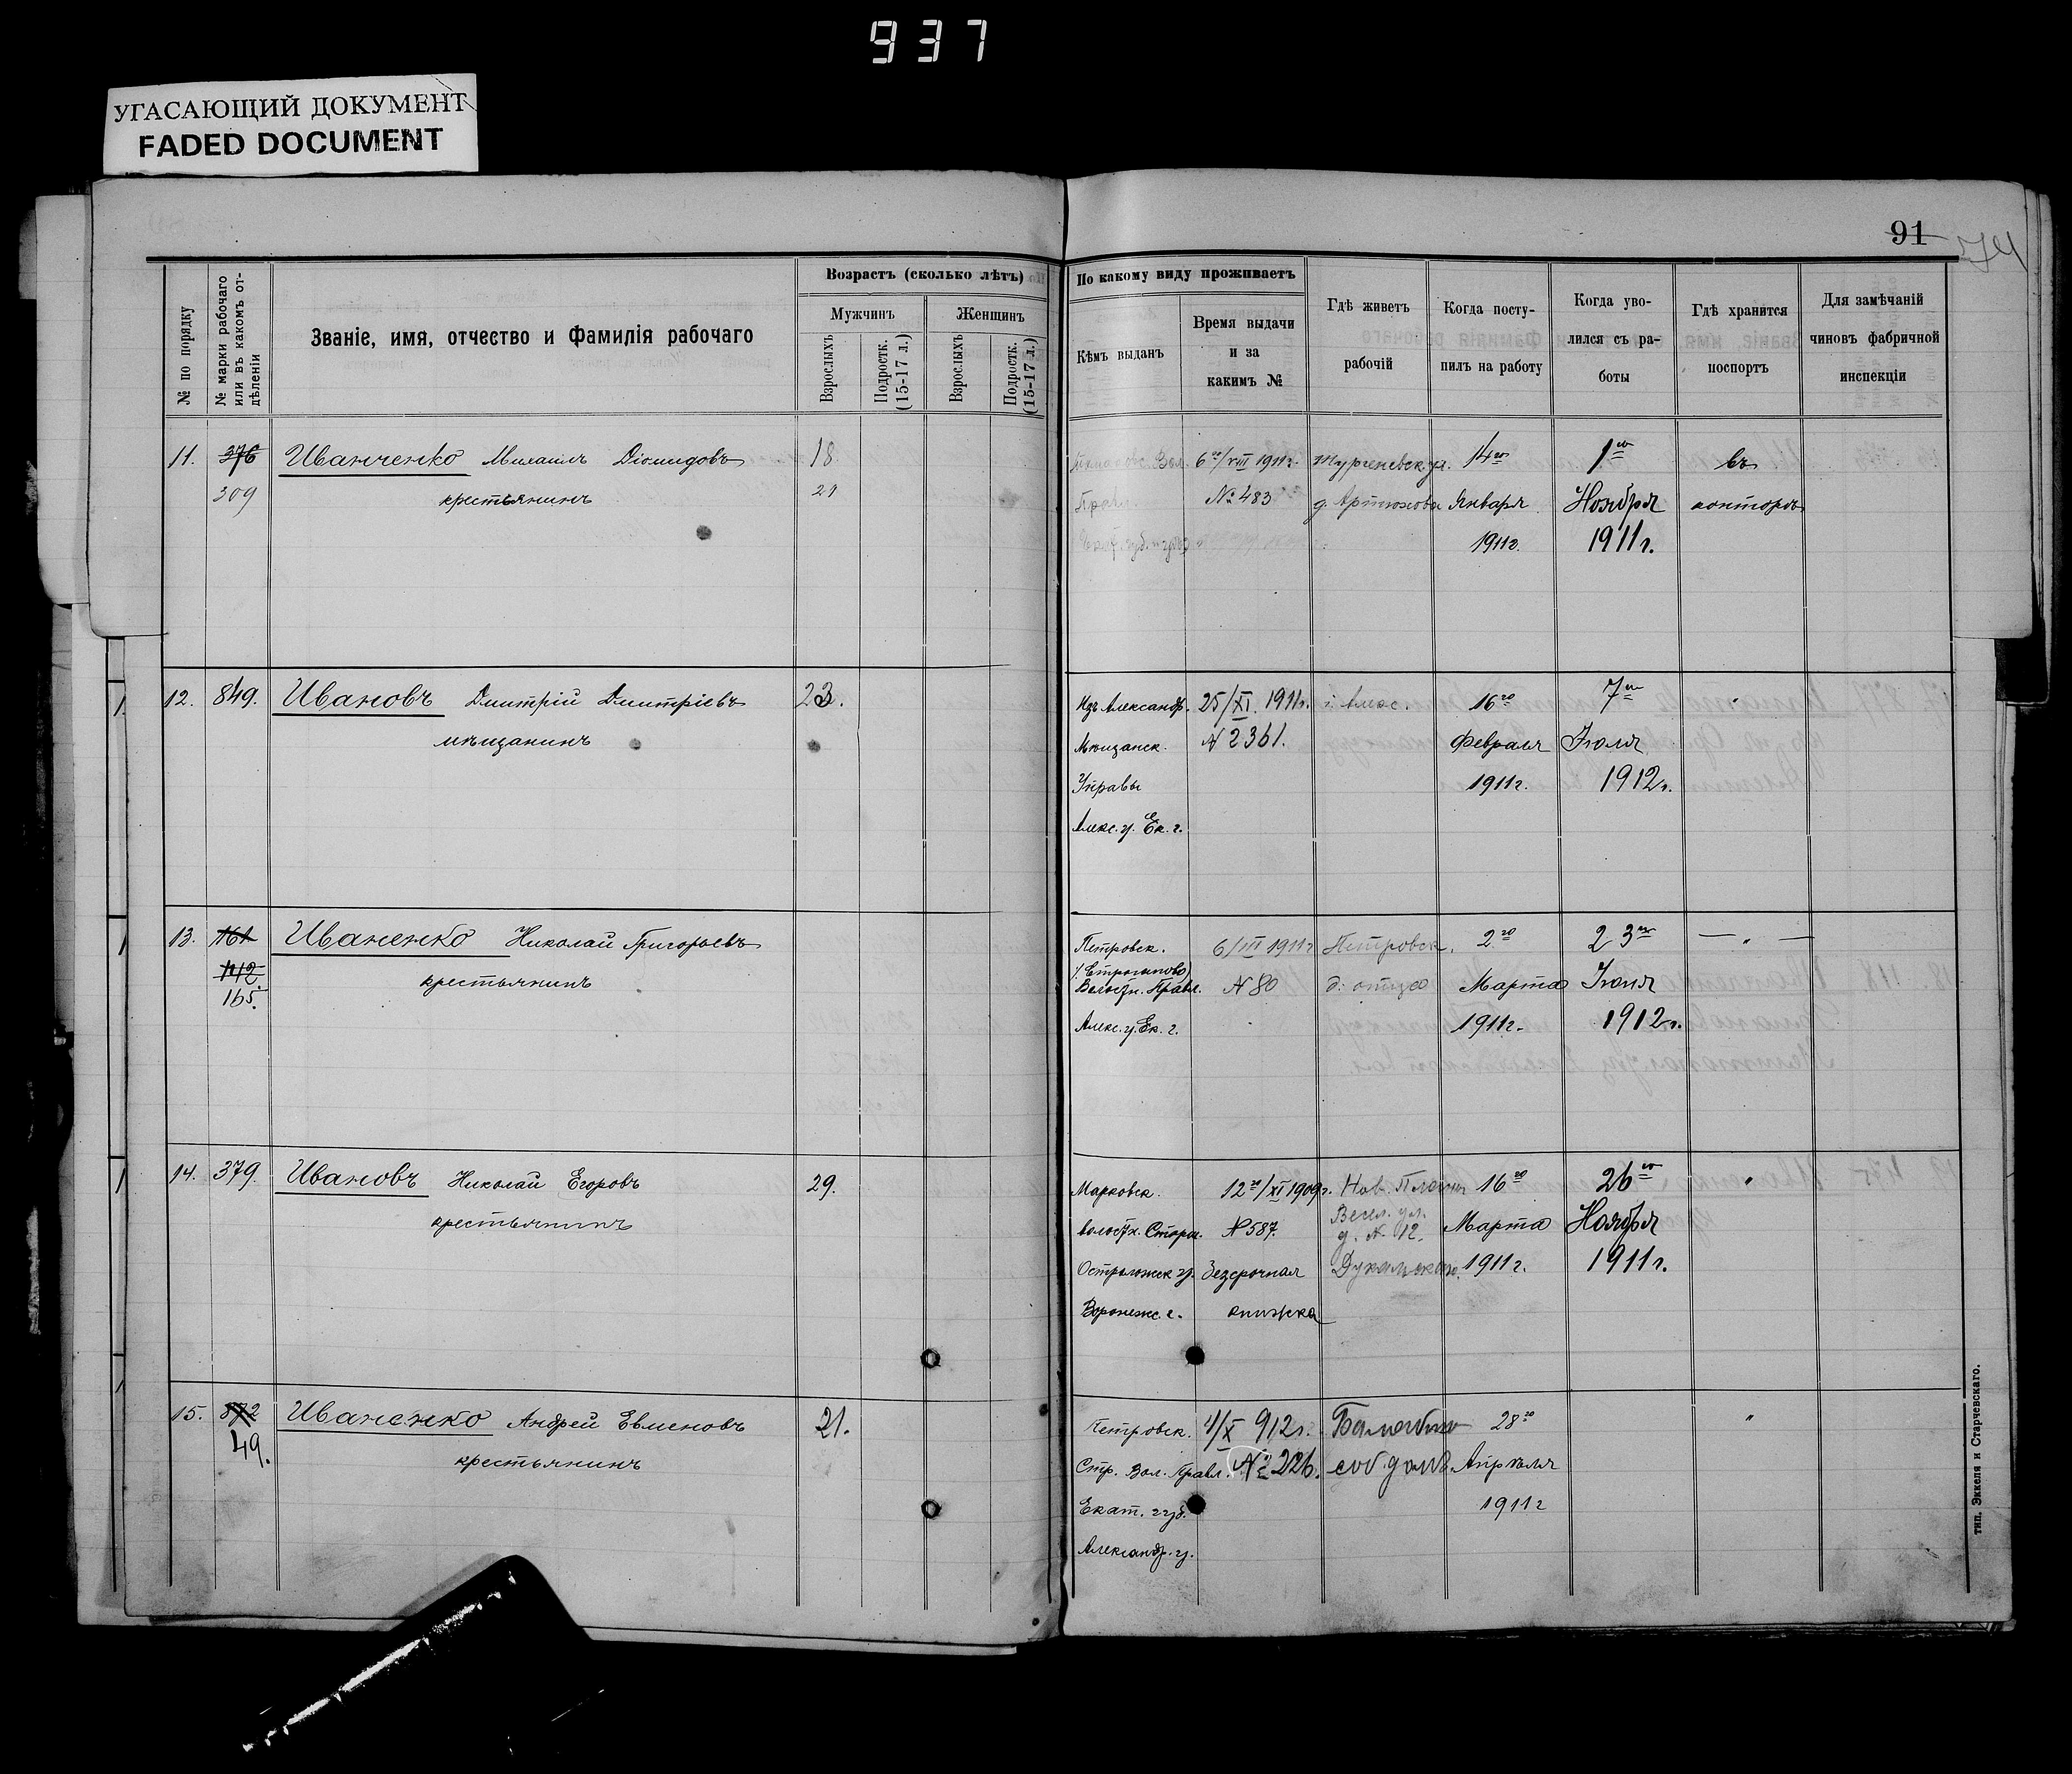 937
УГАСАЮЩИЙ ДОКУМЕНТ
FADED DOCUMENT
91
№ по порядку
№ марки рабочаго или въ какомъ отдѣленіи
Званіе, имя, отчество и Фамилія рабочаго
Возрастъ (сколько лѣтъ)
Мужчинъ
Женщинъ
Взрослыхъ
Подростк. (15-17 л.)
Взрослыхъ
Подростк. (15-17 л.)
По какому виду проживаетъ
Кѣмъ выданъ
Время выдачи
и за
какимъ №
Гдѣ живетъ
рабочій
Когда посту-
пилъ на работу
Когда уво-
лился съ ра-
боты
Гдѣ хранится
поспортъ
Для замѣчаній
чиновъ фабричной
инспекціи
11. 376 Иванченко Михаилъ Діомидовъ 18 Вол. 6го/VIII 1911г. Тургеневск ул. 14го 1го въ
309 крестьянинъ 21 Правл. № 483 д. Артюхова Января Ноября конторѣ
1911г. 1911г.
12. 849. Ивановъ Дмитрій Дмитріевъ 23. Изъ Александр. 25/XI. 1911г. г. Алекс. 16го 7го "
мѣщанинъ Мѣщанск. № 2361. Февраля Іюля
Управы 1911г. 1912г.
Алекс. у. Ек. г.
13. 161 Иваненко Николай Григорьевъ Петровск. 6/III 1911г Петровск. 2го 23го — " —
142. крестьянинъ Волостн. Правл. № 80 д. отца Марта Іюня
165. Алекс. у. Ек. г. 1911г. 1912г.
14. 379. Ивановъ Николай Егоровъ 29. Марковск. 12го/XI 1909г. Нов. Планы 16го 26го "
крестьянинъ волостн. Старш. № 587. Весел. ул. д. № 12. Марта Ноября
Острогожск у. Безсрочная 1911г. 1911г.
Воронежс. г. книжка
15. 872 Иваненко Андрей Евменовъ 21. Петровск. 4/X 912г. 28го "
49. крестьянинъ Стр. Вол. Правл. № 226. соб. домъ Апрѣля
Екат. губ. 1911г
Александр. у.
тип. Эккеля и Старчевскаго.